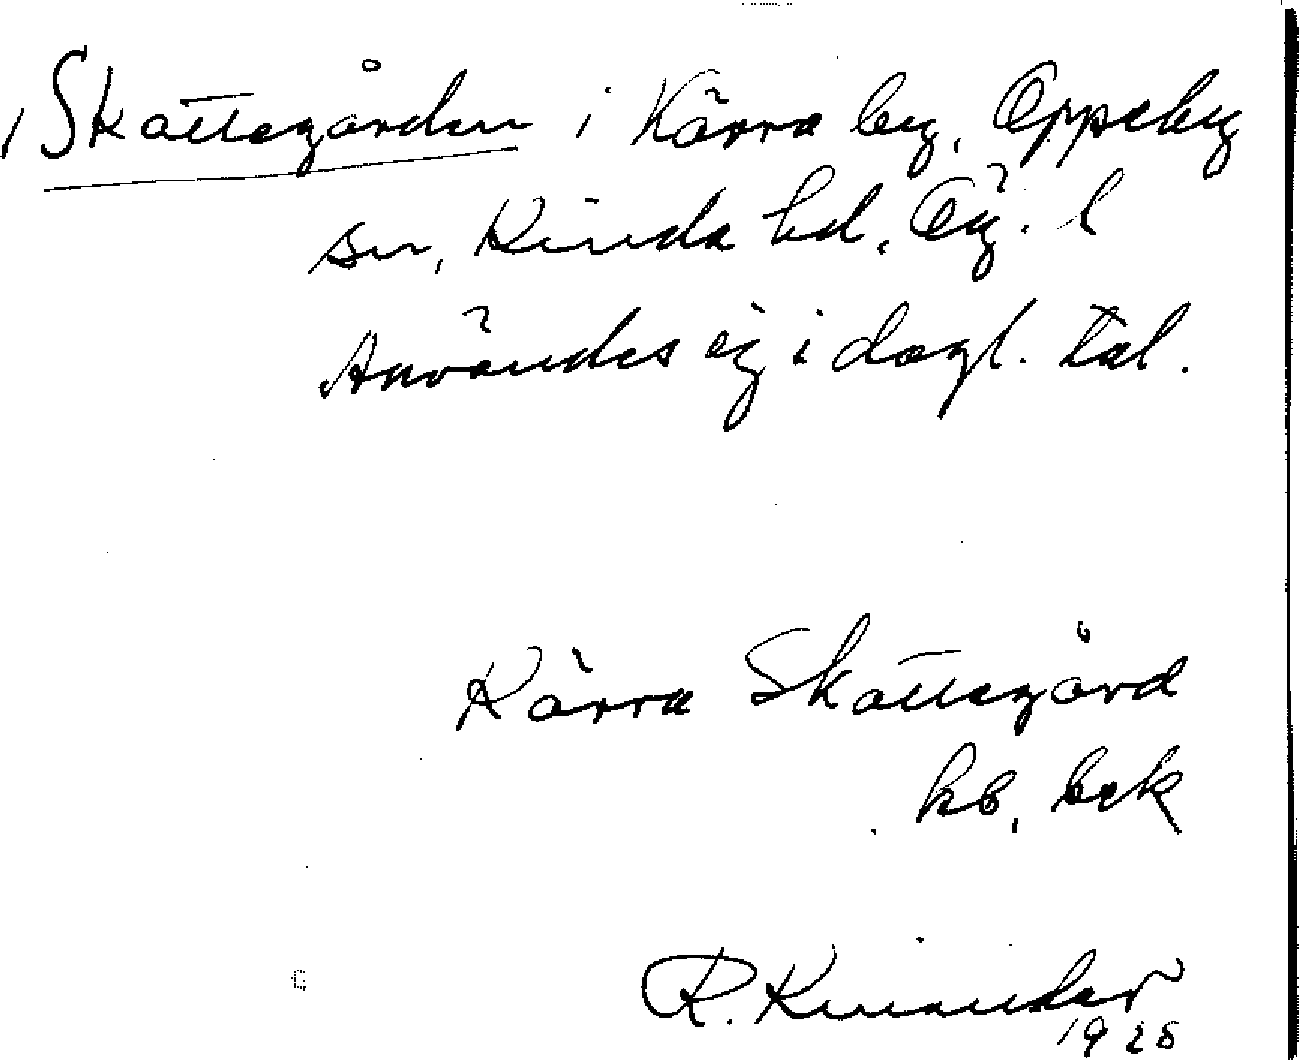 Skattegården i Kärra by, Oppeby
sn, Kinda hd, Ög. l
Användes ej i dagl. tal.
Kärra Skattegård
kb, bek
R. Kinander
1925